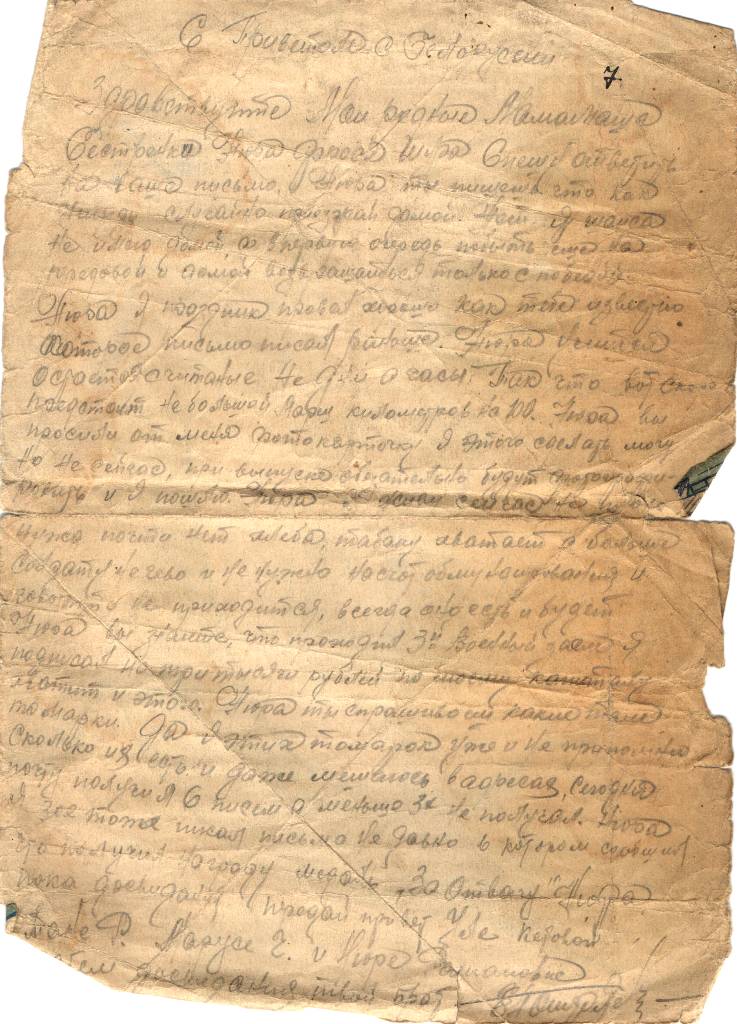 С Приветом с Белоруссии
7
Здравствуйте Мои родные Мамаша
Сестренка Нюра Шура Спешу ответить
на ваше письмо. Нюра ты пишешь что как
случайно приезжай домой. Нет я шанса
не имею домой а в первую очередь попить еще на
передовой и домой возвращаться только с победой
Нюра я праздник провел хорошо как тебе известно
которое письмо писал раньше. Нюра учиться
остается считаные не дни а часы. Так что вот скоро
предстоит не большой марш километров на 100. Нюра вы
просили от меня фотокарточку я этого сделать могу
но не сейчас, при выпуске обязательно будут фотографи-
ровать и я пошлю. Нюра я живу сейчас
нужно почти нет хлеба, табаку хватает а больше
солдату нечево и не нужно насчот обмундирования и
говорить не приходится, всегда оно есть и будет
Нюра вы знаете, что проходил 3й Военный заем я
подписал на три тысячи рублей по моему
хватит и этого. Нюра ты спрашиваеш какие там
помарки. Да я этих помарок уже и не припомню
сколько их есть и даже мешаюсь в адресах, сегодня
почту получил 6 писем а меньше 3х не получал. Нюра
я Зое тоже писал письмо не давно в котором сообщил
что получил награду медаль „За Отвагу" Нюра
пока досвидания передай привет
Р. Марусе Г. и Нюре
досвидания твой брат